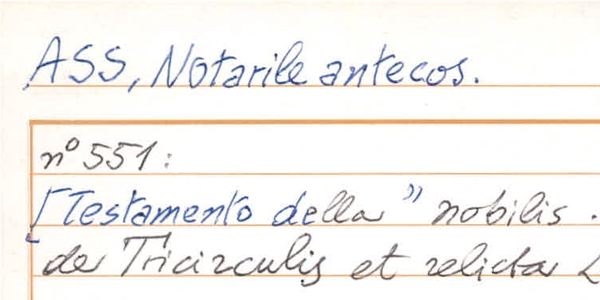 ASS, Notarile antecos.
n° 551:
[Testamento della " nobilis .
de Tricirculis et relicta